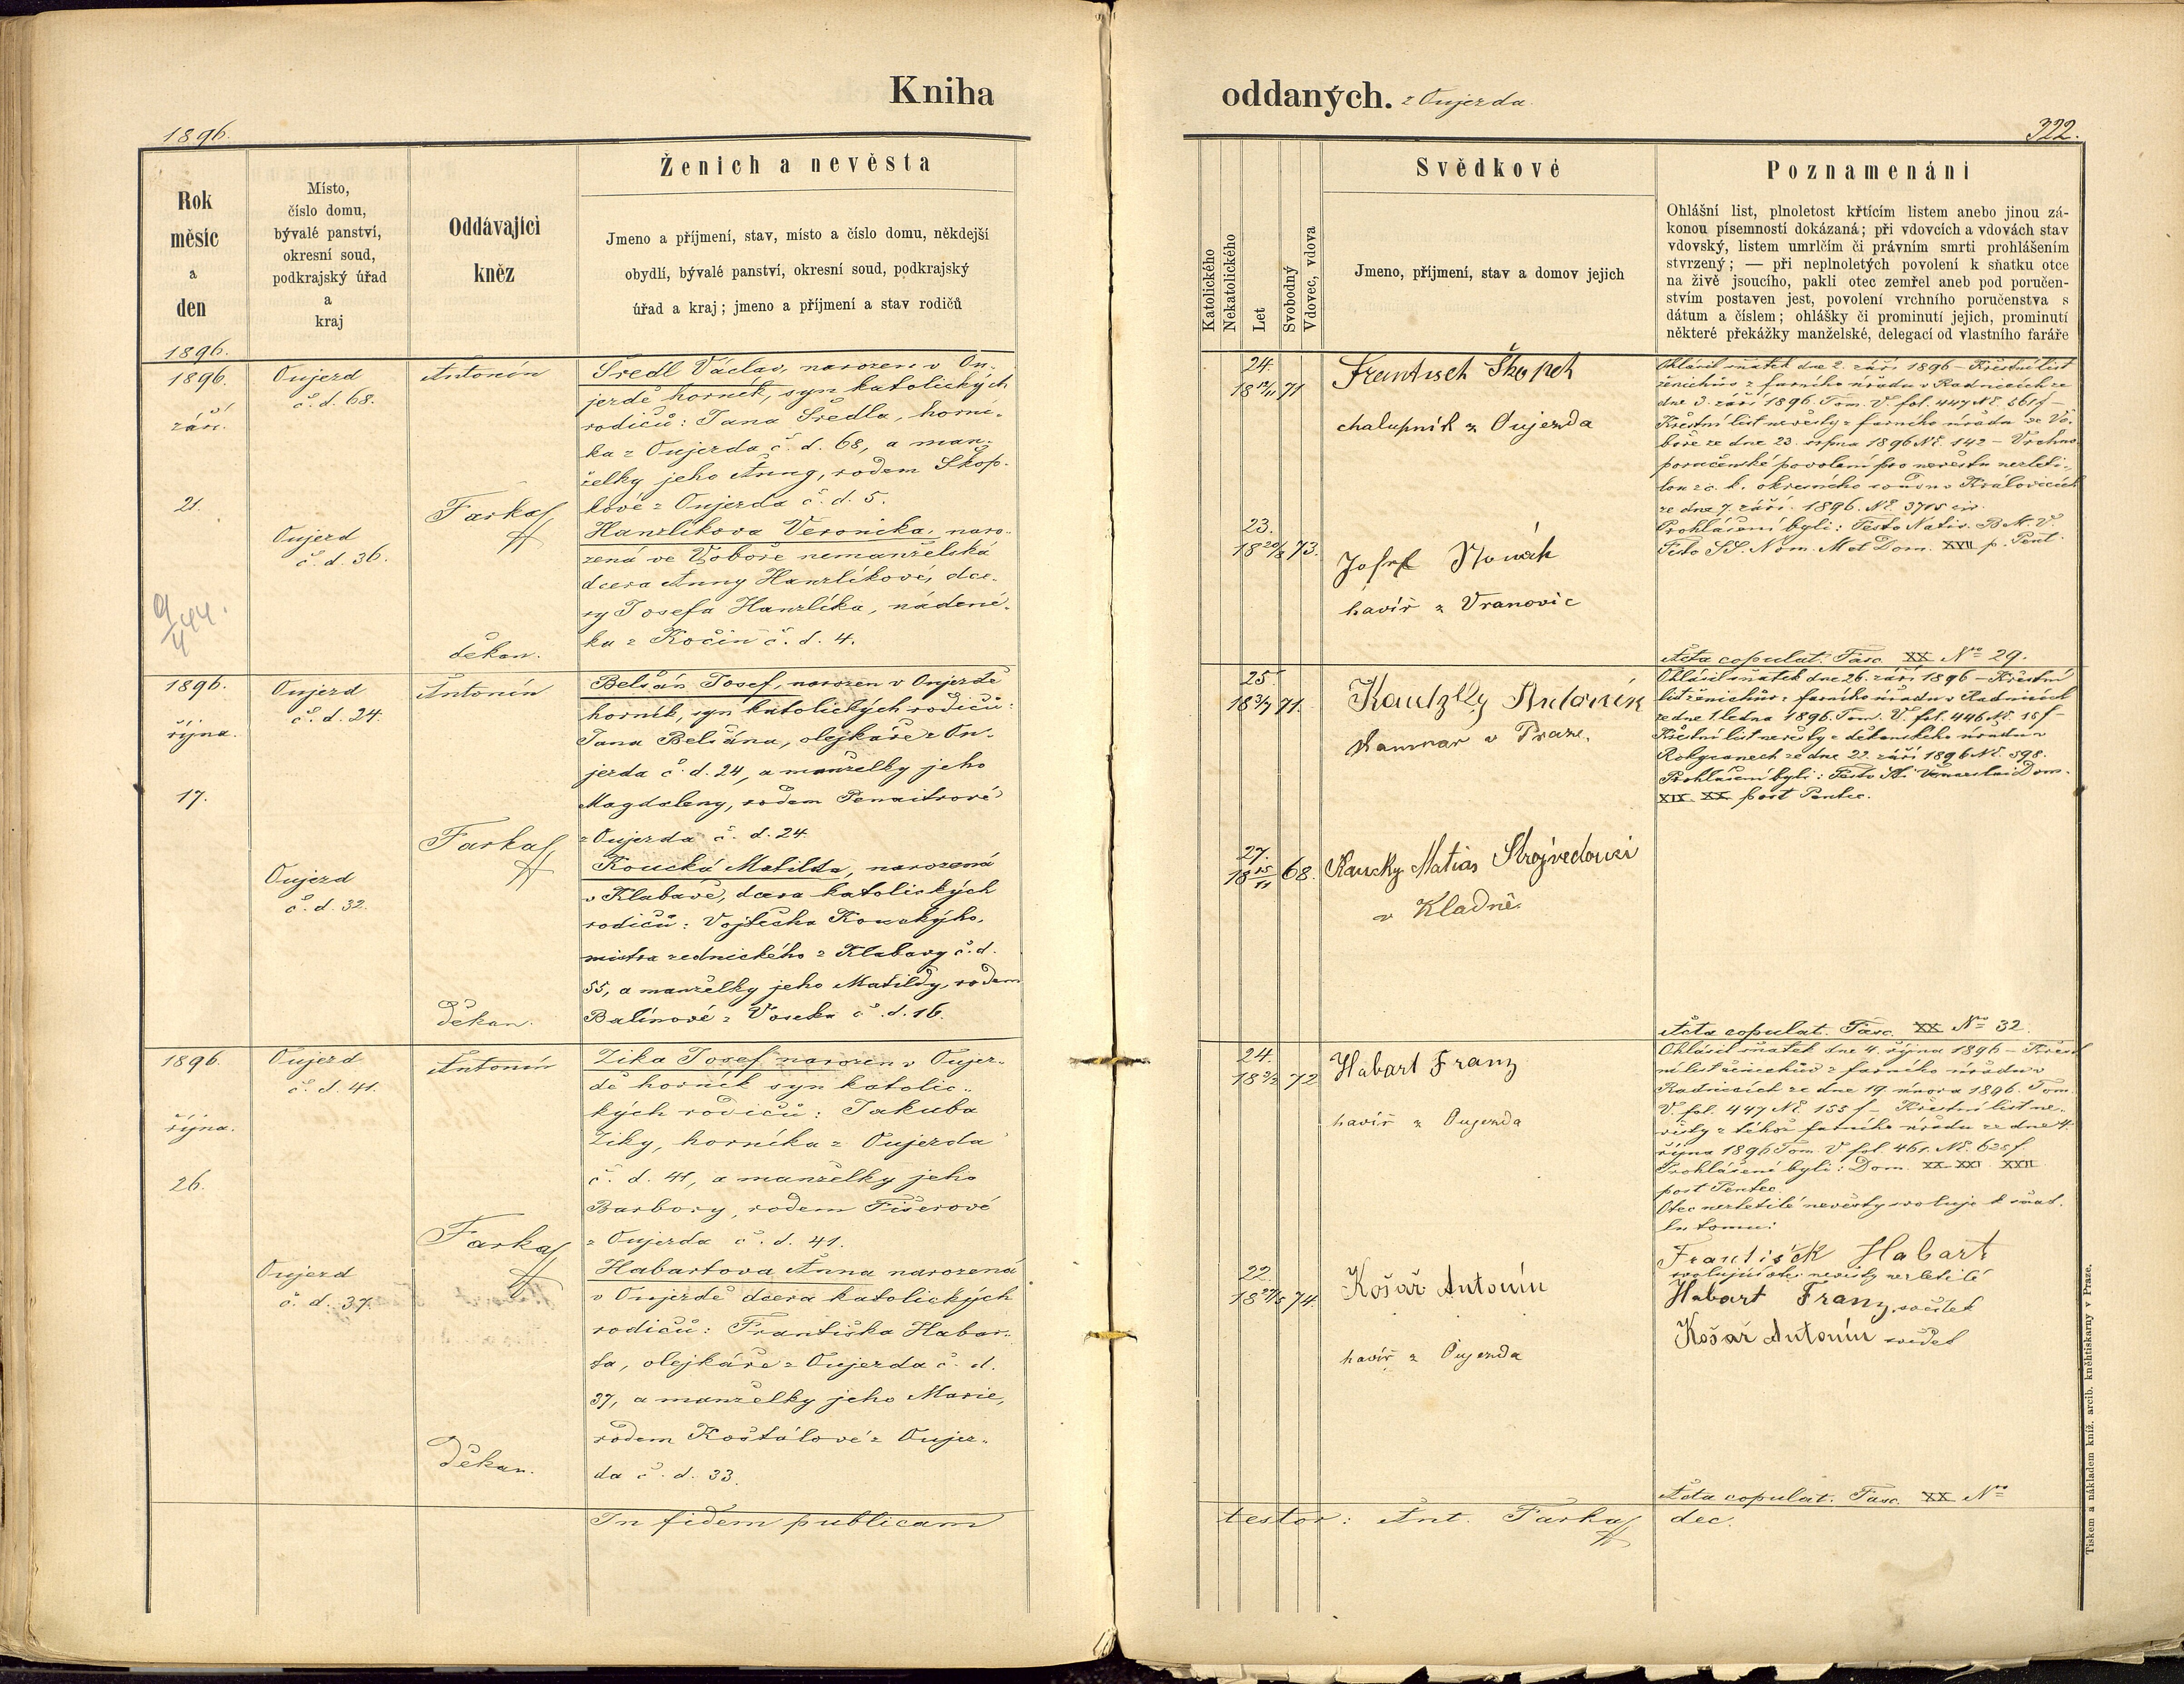 Kniha
oddaných. z Oujezda.
1896.
322.
Rok
měsíc
a
den
Místo,
číslo domu,
bývalé panství,
okresní soud,
podkrajský úřad
a
kraj
Oddávající
kněz
Ženich a nevěsta
Jmeno a příjmení, stav, místo a číslo domu, někdejší
obydlí, bývalé panství, okresní soud, podkrajský
úřad a kraj; jmeno a příjmení a stav rodičů
Katolického
Nekatolického
Let
Svobodný
Vdovec, vdova
Svědkové
Jmeno, příjmení, stav a domov jejich
Poznamenání
Ohlášní list, plnoletost křtícím listem anebo jinou zá-
konou písemností dokázaná; při vdovcích a vdovách stav
vdovský, listem umrlčím či právním smrti prohlášením
stvrzený; — při neplnoletých povolení k sňatku otce
na živě jsoucího, pakli otec zemřel aneb pod poručen-
stvím postaven jest, povolení vrchního poručenstva s
dátum a číslem; ohlášky či prominutí jejich, prominutí
některé překážky manželské, delegací od vlastního faráře
1896.
1896.
září.
21.
9/4 44.
Oujezd
č. d. 68.
Oujezd
č. d. 36.
Antonín
Farkaš
děkan.
Šredl Václav, narozen v Ou-
jezdě horník, syn katolických
rodičů: Jana Šredla, horní-
ka z Oujezda č. d. 68, a man-
želky jeho Anny, rodem Škop-
kové z Oujezda č. d. 5.
Hanzlíkova Veronika, naro-
zená ve Vobore nemanželská
dcera Anny Hanzlíkové, dce-
ry Josefa Hanzlíka, nádení-
ka z Kočín č. d. 4.
24.
18 12/11 71
23.
18 20/2 73.
Frantisek Škopek
chalupník z Oujezda
Josef Nowák
havíř z Vranovic
Ohlásil sňatek dne 2. září 1896 – Křestní list
ženichův z farního úřadu v Radnicích ze
dne 3. září 1896. Tom. V. fol. 447 Nč. 561 f –
Křestní list nevěsty z farního úřadu ve Vo-
boře ze dne 23. srpna 1896 Nč. 142 – Vrchno
poručenské povolení pro nevěstu nezleti-
lou z c. k. okresního soudu v Královicích
ze dne 7. září 1896. Nč. 3715 civ.
Prohlášeni byli: Festo Nativ. B. M. V.
Festo SS. Nom. M. et Dom. XVII p. Pent.
Acta copulat. Fasc. XX Nro 29.
1896.
října.
17.
Oujezd
č. d. 24.
Oujezd
č. d. 32.
Antonín
Farkaš
Děkan.
Belšán Josef, narozen v Oujezdě
horník, syn katolických rodičů:
Jana Belšána, olejkáře z Ou-
jezda č. d. 24, a manželky jeho
Magdaleny, rodem
z Oujezda č. d. 24.
Koucká Matilda, narozená
v Klabavě, dcera katolických
rodičů: Vojtěcha Kouckýho,
mistra zednického z Klabavy č. d.
55, a manželky jeho Matildy, rodem
Balínové z Voseka č. d. 16.
25
18 3/7 71.
27.
18 15/11 68.
Antonín
v Praze.
Koucky Matias Strojvedouci
v Kladně.
Ohlásil sňatek dne 26. září 1896 – Křestní
list ženichův z farního úřadu v Radnicích
ze dne 1. ledna 1896. Tom. V. fol. 446 Nč. 15 f –
Křestní list nevěsty z děkanského úřadu v
Rokycanech ze dne 22. září 1896 Nč. 598.
Prohlášeni byli: Festo Sti Venceslai Dom.
XIX. XX. post Pentec.
Acta copulat. Fasc. XX Nro 32.
1896.
října.
26.
Oujezd
č. d. 41.
Oujezd
č. d. 37.
Antonín
Farkaš
Děkan.
Zika Josef narozen v Oujez-
dě horník syn katolic-
kých rodičů: Jakuba
Ziky, horníka z Oujezda
č. d. 41, a manželky jeho
Barbory, rodem Fišerové
z Oujezda č. d. 41.
Habartova Anna narozená
v Oujezdě dcera katolických
rodičů: Františka Habar-
ta, olejkáře z Oujezda č. d.
37, a manželky jeho Marie,
rodem Koštálové z Oujez-
da č. d. 33.
24.
18 3/2 72
22.
18 27/5 74.
Habart Franz
havíř z Oujezda
Košař Antonín
havíř z Oujezda
Ohlásil sňatek dne 4. října 1896 – Křest
ní list ženichův z farního úřadu v
Radnicích ze dne 19. února 1896. Tom.
V. fol. 447 Nč. 155 f – Křestní list ne-
věsty z téhož farního úřadu ze dne 4.
října 1896 Tom. V fol. 461. Nč. 625 f.
Prohlášeni byli: Dom. XX. XXI. XXII
post Pentec.
Otec nezletilé nevěsty svoluje k sňat-
ku tomu:
František Habart
svolující otec nevěsty nezletilé
Habart Franz, svědek
Košař Antonín svědek
Acta copulat. Fasc. XX Nro
In fidem publicam
testor: Ant. Farkaš dec.
Tiskem a nákladem kníž. arcib. kněhtiskarny v Praze.